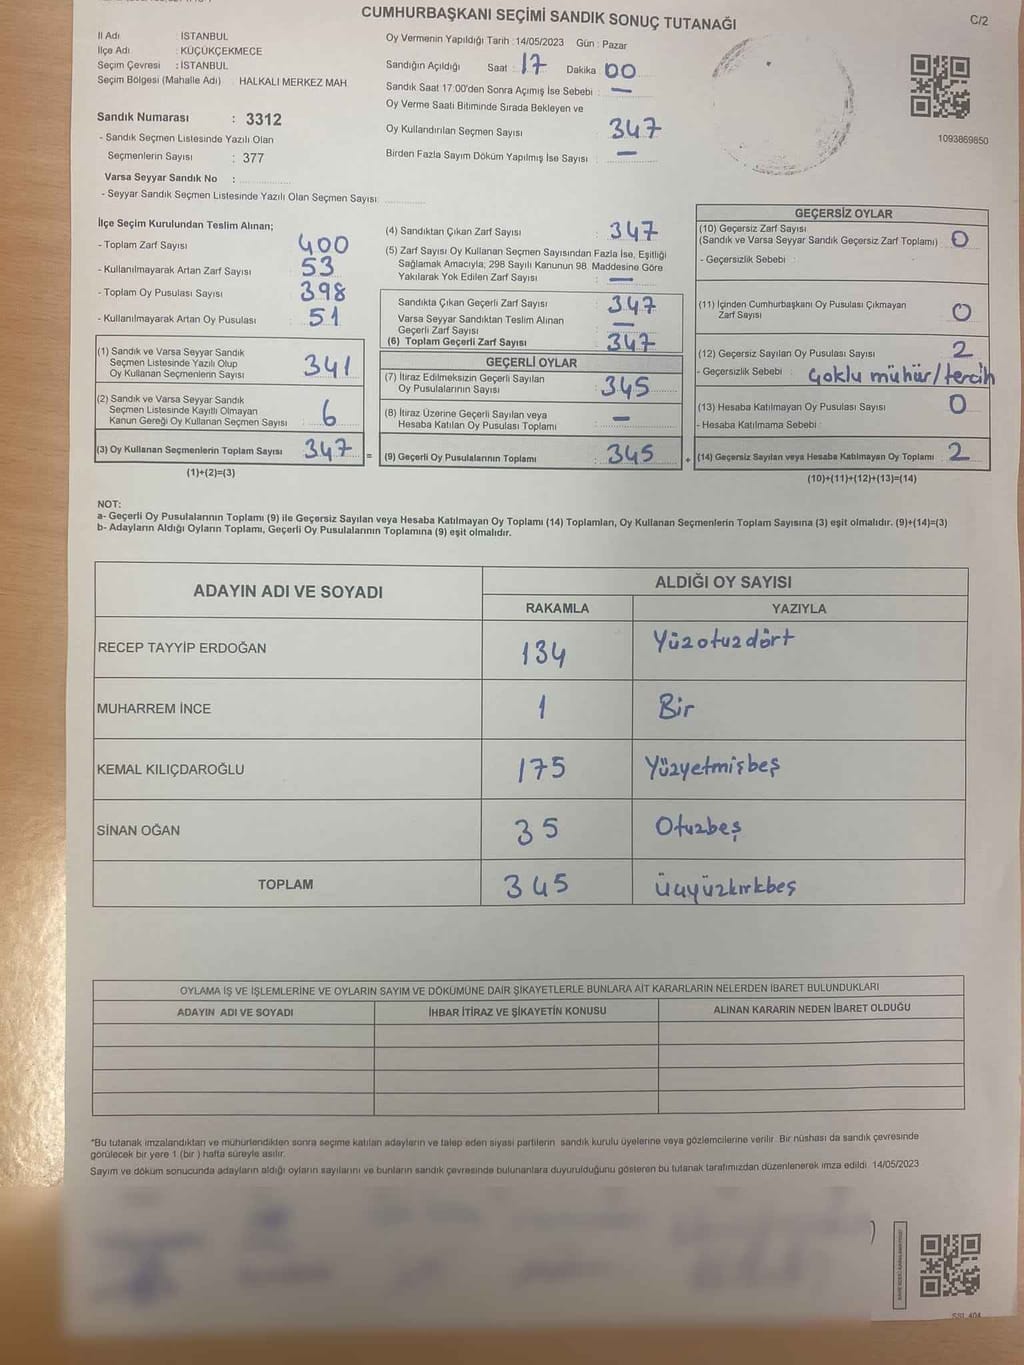 CUMHURBAŞKANI SEÇİMİ SANDIK SONUÇ TUTANAĞI
C/2
İl Adı : İSTANBUL
İlçe Adı : KÜÇÜKÇEKMECE
Seçim Çevresi : İSTANBUL
Seçim Bölgesi (Mahalle Adı) HALKALI MERKEZ MAH
Sandık Numarası : 3312
- Sandık Seçmen Listesinde Yazılı Olan
Seçmenlerin Sayısı : 377
Varsa Seyyar Sandık No :
- Seyyar Sandık Seçmen Listesinde Yazılı Olan Seçmen Sayısı:
Oy Vermenin Yapıldığı Tarih : 14/05/2023 Gün : Pazar
Sandığın Açıldığı Saat : 17 Dakika 00
Sandık Saat 17.00'den Sonra Açımış İse Sebebi : —
Oy Verme Saati Bitiminde Sırada Bekleyen ve
Oy Kullandırılan Seçmen Sayısı 347
Birden Fazla Sayım Döküm Yapılmış İse Sayısı : —
1093869850
İlçe Seçim Kurulundan Teslim Alınan;
- Toplam Zarf Sayısı 400
- Kullanılmayarak Artan Zarf Sayısı : 53
- Toplam Oy Pusulası Sayısı : 398
- Kullanılmayarak Artan Oy Pusulası : 51
(1) Sandık ve Varsa Seyyar Sandık
Seçmen Listesinde Yazılı Olup
Oy Kullanan Seçmenlerin Sayısı : 341
(2) Sandık ve Varsa Seyyar Sandık
Seçmen Listesinde Kayıtlı Olmayan
Kanun Gereği Oy Kullanan Seçmen Sayısı : 6
(3) Oy Kullanan Seçmenlerin Toplam Sayısı : 347 =
(1)+(2)=(3)
(4) Sandıktan Çıkan Zarf Sayısı : 347
(5) Zarf Sayısı Oy Kullanan Seçmen Sayısından Fazla İse, Eşitliği
Sağlamak Amacıyla; 298 Sayılı Kanunun 98. Maddesine Göre
Yakılarak Yok Edilen Zarf Sayısı : —
Sandıkta Çıkan Geçerli Zarf Sayısı : 347
Varsa Seyyar Sandıktan Teslim Alınan
Geçerli Zarf Sayısı : —
(6) Toplam Geçerli Zarf Sayısı : 347
GEÇERLİ OYLAR
(7) İtiraz Edilmeksizin Geçerli Sayılan
Oy Pusulalarının Sayısı : 345
(8) İtiraz Üzerine Geçerli Sayılan veya
Hesaba Katılan Oy Pusulası Toplamı : —
(9) Geçerli Oy Pusulalarının Toplamı : 345 +
GEÇERSİZ OYLAR
(10) Geçersiz Zarf Sayısı
(Sandık ve Varsa Seyyar Sandık Geçersiz Zarf Toplamı) : 0
- Geçersizlik Sebebi :
(11) İçinden Cumhurbaşkanı Oy Pusulası Çıkmayan
Zarf Sayısı : 0
(12) Geçersiz Sayılan Oy Pusulası Sayısı : 2
- Geçersizlik Sebebi : Çoklu mühür/tercih
(13) Hesaba Katılmayan Oy Pusulası Sayısı : 0
- Hesaba Katılmama Sebebi :
(14) Geçersiz Sayılan veya Hesaba Katılmayan Oy Toplamı : 2
(10)+(11)+(12)+(13)=(14)
NOT:
a- Geçerli Oy Pusulalarının Toplamı (9) ile Geçersiz Sayılan veya Hesaba Katılmayan Oy Toplamı (14) Toplamları, Oy Kullanan Seçmenlerin Toplam Sayısına (3) eşit olmalıdır. (9)+(14)=(3)
b- Adayların Aldığı Oyların Toplamı, Geçerli Oy Pusulalarının Toplamına (9) eşit olmalıdır.
ADAYIN ADI VE SOYADI
ALDIĞI OY SAYISI
RAKAMLA YAZIYLA
RECEP TAYYİP ERDOĞAN 134 Yüzotuzdört
MUHARREM İNCE 1 Bir
KEMAL KILIÇDAROĞLU 175 Yüzyetmişbeş
SİNAN OĞAN 35 Otuzbeş
TOPLAM 345 Üçyüzkırkbeş
OYLAMA İŞ VE İŞLEMLERİNE VE OYLARIN SAYIM VE DÖKÜMÜNE DAİR ŞİKAYETLERLE BUNLARA AİT KARARLARIN NELERDEN İBARET BULUNDUKLARI
ADAYIN ADI VE SOYADI İHBAR İTİRAZ VE ŞİKAYETİN KONUSU ALINAN KARARIN NEDEN İBARET OLDUĞU
*Bu tutanak imzalandıktan ve mühürlendikten sonra seçime katılan adayların ve talep eden siyasi partilerin sandık kurulu üyelerine veya gözlemcilerine verilir. Bir nüshası da sandık çevresinde
görülecek bir yere 1 (bir ) hafta süreyle asılır.
Sayım ve döküm sonucunda adayların aldığı oyların sayılarını ve bunların sandık çevresinde bulunanlara duyurulduğunu gösteren bu tutanak tarafımızdan düzenlenerek imza edildi. 14/05/2023